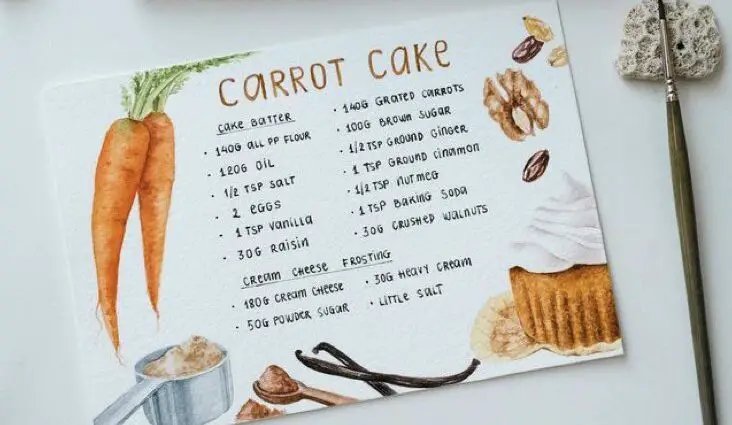 CARROT CAKE
CAKE BATTER
• 140G ALL PP FLOUR
• 120G OIL
• 1/2 TSP SALT
• 2 EGGS
• 1 TSP VANILLA
• 30G RAISIN
• 140G GRATED CARROTS
• 100G BROWN SUGAR
• 1/2 TSP GROUND GINGER
• 1 TSP GROUND CINNAMON
• 1/2 TSP NUTMEG
• 1 TSP BAKING SODA
• 30G CRUSHED WALNUTS
CREAM CHEESE FROSTING
• 180G CREAM CHEESE
• 50G POWDER SUGAR
• 30G HEAVY CREAM
• LITTLE SALT